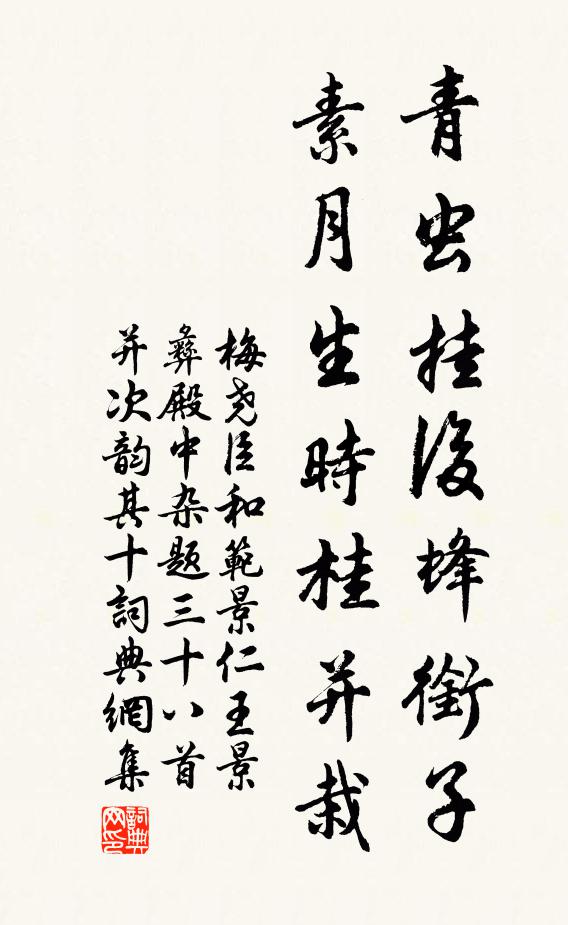 青虫挂後蜂銜子
素月生時桂并栽
梅尧臣和範景仁王景
彝殿中杂题三十八首
并次韵其十詞典網集
詞典
网印